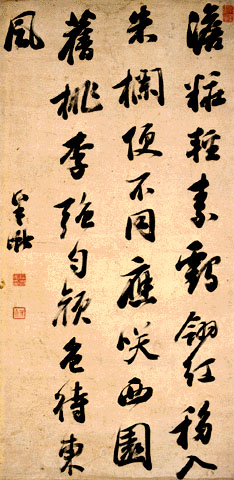 澹粧輕素鶴翎紅移入
朱欄便不同應咲西園
舊桃李強勻顏色待東
風